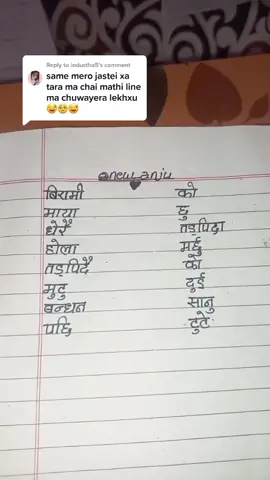 Reply to industha5's comment
same mero jastei xa
tara ma chai mathi line
ma chuwayera lekhxu
😅🥺😅
बिरामी को
माया छु
धेरै तड्पिदा
होला मर्छु
तड्पिदै को
मुटु दुई
बन्धन सानु
पछि टुटे